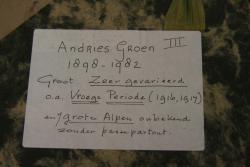 Andries Groen III
1898-1982
Groot Zeer gevarieerd
o.a. Vroege Periode (1916, 1917)
en grote Alpen onbekend
zonder passepartout.